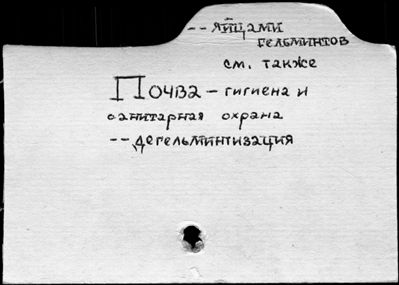 -- яйцами
гельминтов
см. также
Почва – гигиена и
санитарная охрана
-- дегельминтизация